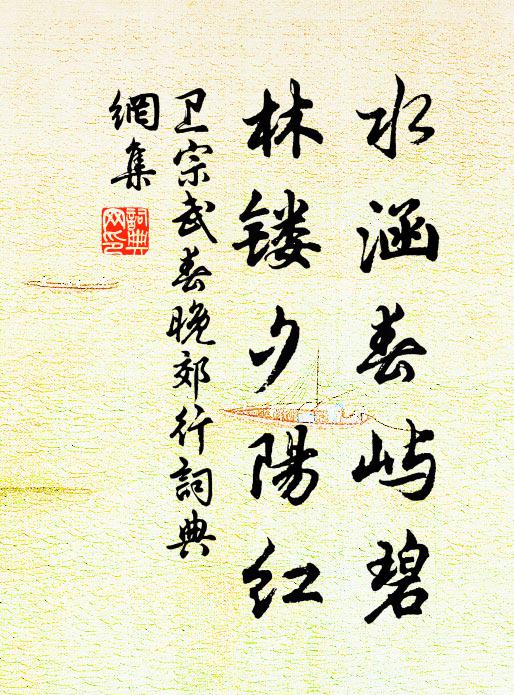 水涵春屿碧
林镂夕陽红
卫宗武春晚郊行詞典
網集
詞典
网印